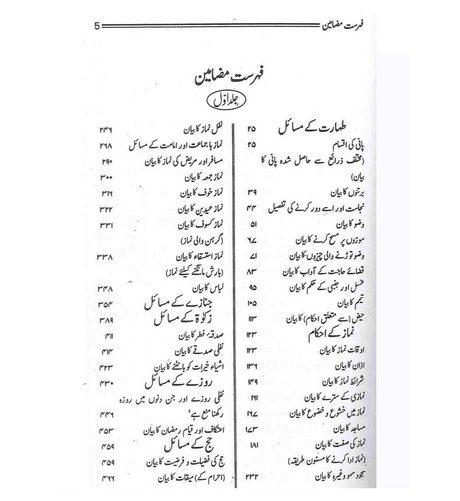 5 فہرست مضامین
فہرست مضامین
جلد اوّل
طہارت کے مسائل ۲۵
پانی کی اقسام ۲۵
(مختلف ذرائع سے حاصل شدہ پانی کا
بیان)
برتنوں کا بیان ۳۹
نجاست اور اسے دور کرنے کی تفصیل ۴۴
وضو کا بیان ۵۱
موزوں پر مسح کرنے کا بیان ۶۷
وضو توڑنے والی چیزوں کا بیان ۷۱
قضائے حاجت کے آداب کا بیان ۸۳
غسل اور جنبی کے حکم کا بیان ۹۵
تیمم کا بیان ۱۰۵
حیض (سے متعلق احکام) کا بیان ۱۱۳
نماز کے احکام ۱۲۳
اوقات نماز کا بیان ۱۲۳
اذان کا بیان ۱۳۶
شرائط نماز کا بیان ۱۴۹
نمازی کے سترے کا بیان ۱۶۱
نماز میں خشوع و خضوع کا بیان ۱۶۷
مساجد کا بیان ۱۷۳
نماز کی صفت کا بیان ۱۸۱
(نماز ادا کرنے کا مسنون طریقہ)
سجود سہو وغیرہ کا بیان ۲۳۲
نفل نماز کا بیان ۲۴۶
نماز باجماعت اور امامت کے مسائل ۲۶۸
مسافر اور مریض کی نماز کا بیان ۲۹۰
نماز جمعہ کا بیان ۳۰۰
نماز خوف کا بیان ۳۱۶
نماز عیدین کا بیان ۳۲۲
نماز کسوف کا بیان ۳۳۱
(گرہن والی نماز)
نماز استسقاء کا بیان ۳۳۸
(بارش مانگنے کیلئے نماز)
لباس کا بیان ۳۴۸
جنازے کے مسائل ۳۵۴
زکوٰۃ کے مسائل ۳۸۹
صدقہ فطر کا بیان ۴۱۱
نفلی صدقے کا بیان ۴۱۴
اشیاء خیرات کو بانٹنے کا بیان ۴۲۳
روزے کے مسائل ۴۳۰
نفلی روزے اور جن دنوں میں روزہ
رکھنا منع ہے ۴۴۶
اعتکاف اور قیام رمضان کا بیان ۴۵۳
حج کے مسائل ۴۵۹
حج کی فضیلت و فرضیت کا بیان ۴۵۹
(احرام کے) میقات کا بیان ۴۶۶